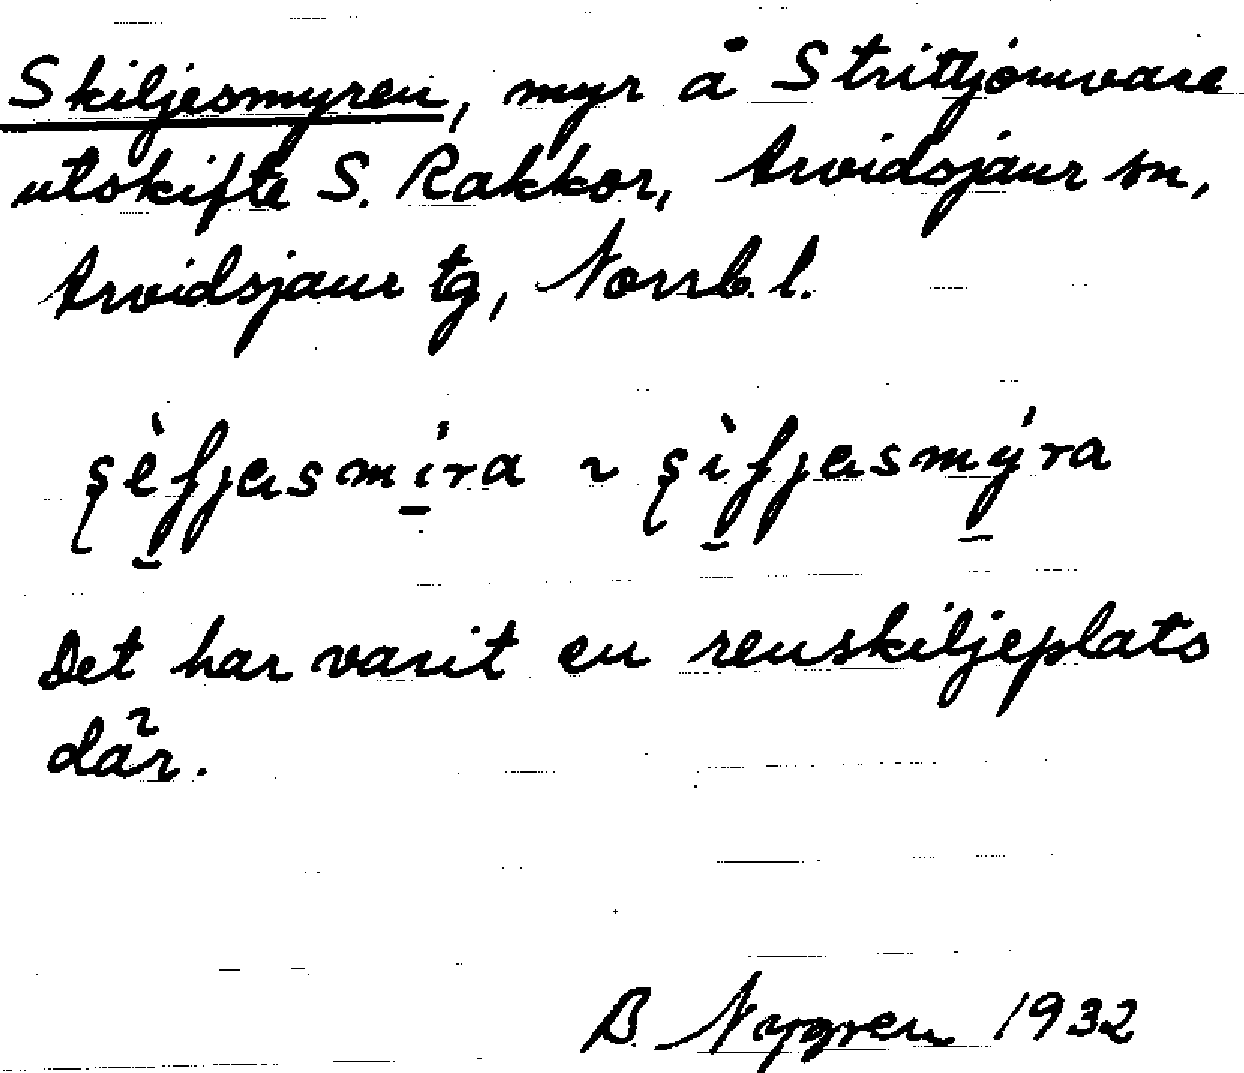 Skiljesmyren, myr å Strittjómvare
utskifte S. Rakkor, Arvidsjaur sn,
Arvidsjaur tg, Norrb. l.
Det har varit en renskiljeplats
där.
B. Nygren 1932